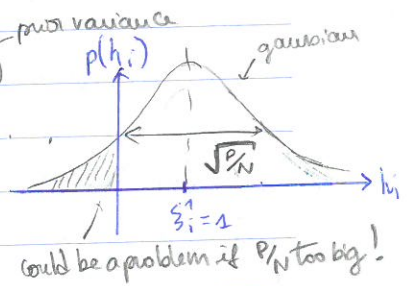 prior variance
p(hᵢ)
gaussian
√P/N
hᵢ
ξᵢ¹=1
could be a problem if P/N too big!